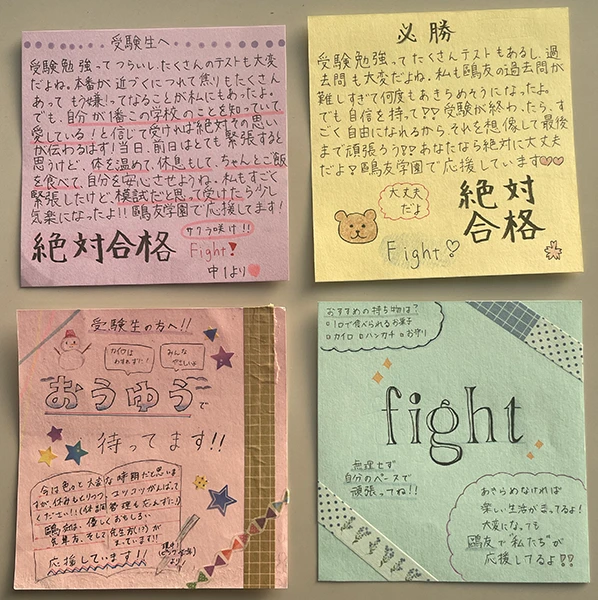 受験生へ
受験勉強ってつらいし、たくさんのテストも大変
だよね。本番が近づくにつれて焦りもたくさん
あってもう嫌!ってなることが私にもあったよ。
でも、自分が1番この学校のことを知っていて、
愛している!と信じて受ければ絶対その思い
が伝わるはず!当日、前日はとても緊張すると
思うけど、体を温めて、休息もして、ちゃんとご飯
を食べて、自分を安心させようね。私もすごく
緊張したけど、模試だと思って受けたら少し
気楽になったよ!!鷗友学園で応援してます!
絶対合格
サクラ咲け!!
Fight!
中1より
必勝
受験勉強ってたくさんテストもあるし、過
去問も大変だよね。私も鷗友の過去問が
難しすぎて何度もあきらめそうになったよ。
でも自信を持って♡♡受験が終わったら、す
ごく自由になれるからそれを想像して最後
まで頑張ろう♡♡あなたなら絶対に大丈夫
だよ♡鷗友学園で応援しています♡♡
大丈夫
だよ
絶対
合格
Fight♡
受験生の方へ!!
カイロは
わすれずに!
みんな
やさしいよ
おうゆうで
待ってます!!
今は色々と大変な時期だと思いま
すが、休みもとりつつ、コツコツがんばって
ください!!(体調管理も忘れずに)
鷗友は、優しくおもしろい
先輩方、そして先生方(!?)が
まっています!!
応援しています!!
より
おすすめの持ち物は?
□1口で食べられるお菓子
□カイロ □ハンカチ □お守り
fight
無理せず
自分のペースで
頑張ってね!!
あきらめなければ
楽しい生活がまってるよ!
大変になっても
鷗友で"私たち"が
応援してるよ!!